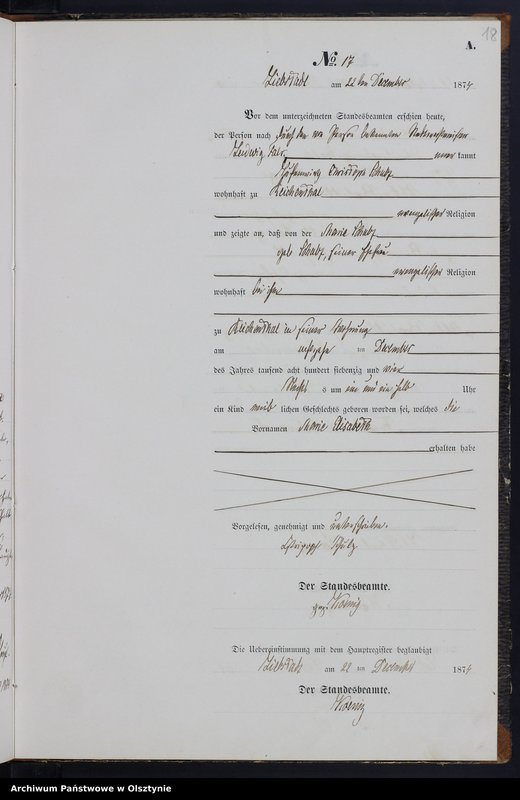 18
A.
No. 17
Liebstadt am 22 ten December 1874
Vor dem unterzeichneten Standesbeamten erschien heute,
der Person nach durch den von Person bekannten
Ludwig kannt
Christoph Schulz
wohnhaft zu Reichenthal
evangelischer Religion
und zeigte an, daß von der Marie Schulz
geb. seiner Ehefrau
evangelischer Religion
wohnhaft bei ihm
zu Reichenthal in seiner Wohnung
am ten December
des Jahres tausend acht hundert siebenzig und vier
Nachts um ein und ein halb Uhr
ein Kind weib lichen Geschlechts geboren worden sei, welches die
Vornamen Marie Elisabeth
erhalten habe
Vorgelesen, genehmigt und unterschrieben.
Christoph Schulz
Der Standesbeamte.
gez. Koenig
Die Uebereinstimmung mit dem Hauptregister beglaubigt
Liebstadt am 22 ten December 1874
Der Standesbeamte.
Koenig
Archiwum Państwowe w Olsztynie